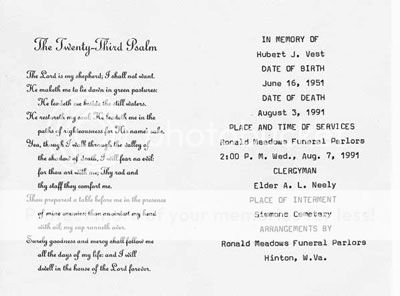 The Twenty-Third Psalm
The Lord is my shepherd; I shall not want.
He maketh me to lie down in green pastures:
He leadeth me beside the still waters.
He restoreth my soul; He leadeth me in the
paths of righteousness for His name's sake.
Yea, though I walk through the valley of
the shadow of death, I will fear no evil:
for thou art with me; Thy rod and
thy staff they comfort me.
Thou preparest a table before me in the presence
of mine enemies; thou anointest my head
with oil; my cup runneth over.
Surely goodness and mercy shall follow me
all the days of my life; and I will
dwell in the house of the Lord forever.
IN MEMORY OF
Hubert J. Vest
DATE OF BIRTH
June 16, 1951
DATE OF DEATH
August 3, 1991
PLACE AND TIME OF SERVICES
Ronald Meadows Funeral Parlors
2:00 P. M. Wed., Aug. 7, 1991
CLERGYMAN
Elder A. L. Neely
PLACE OF INTERMENT
Simmons Cemetary
ARRANGEMENTS BY
Ronald Meadows Funeral Parlors
Hinton, W.Va.